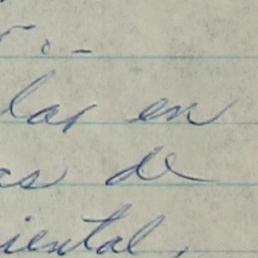 las en
as de
iental,